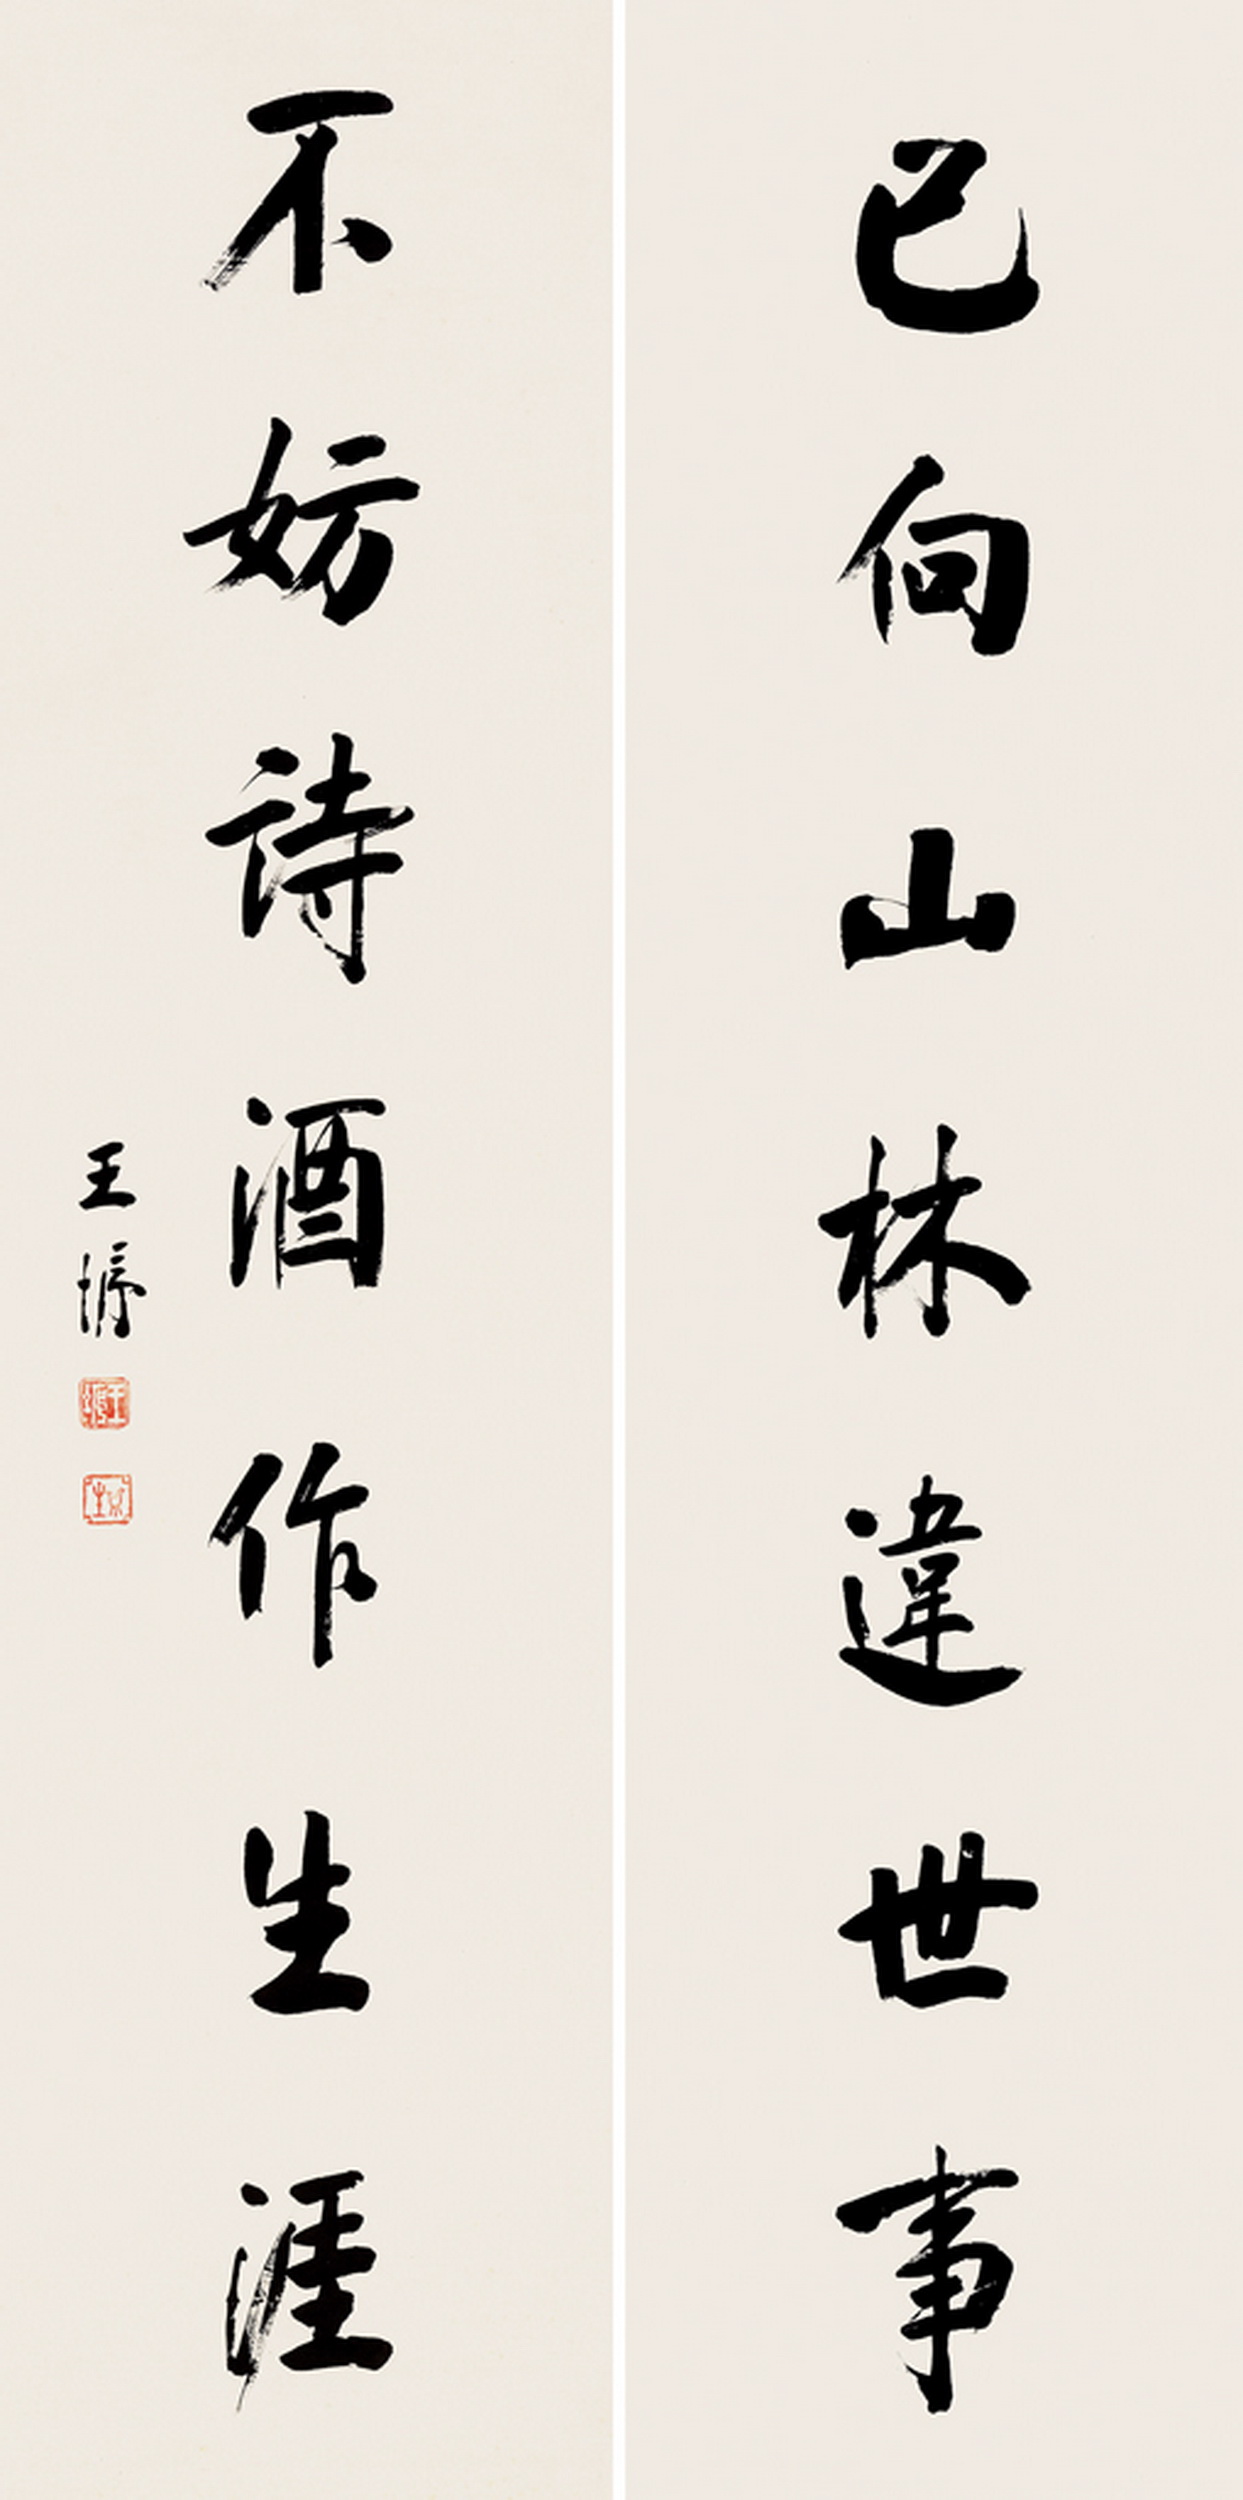 已向山林違世事
不妨詩酒作生涯
王